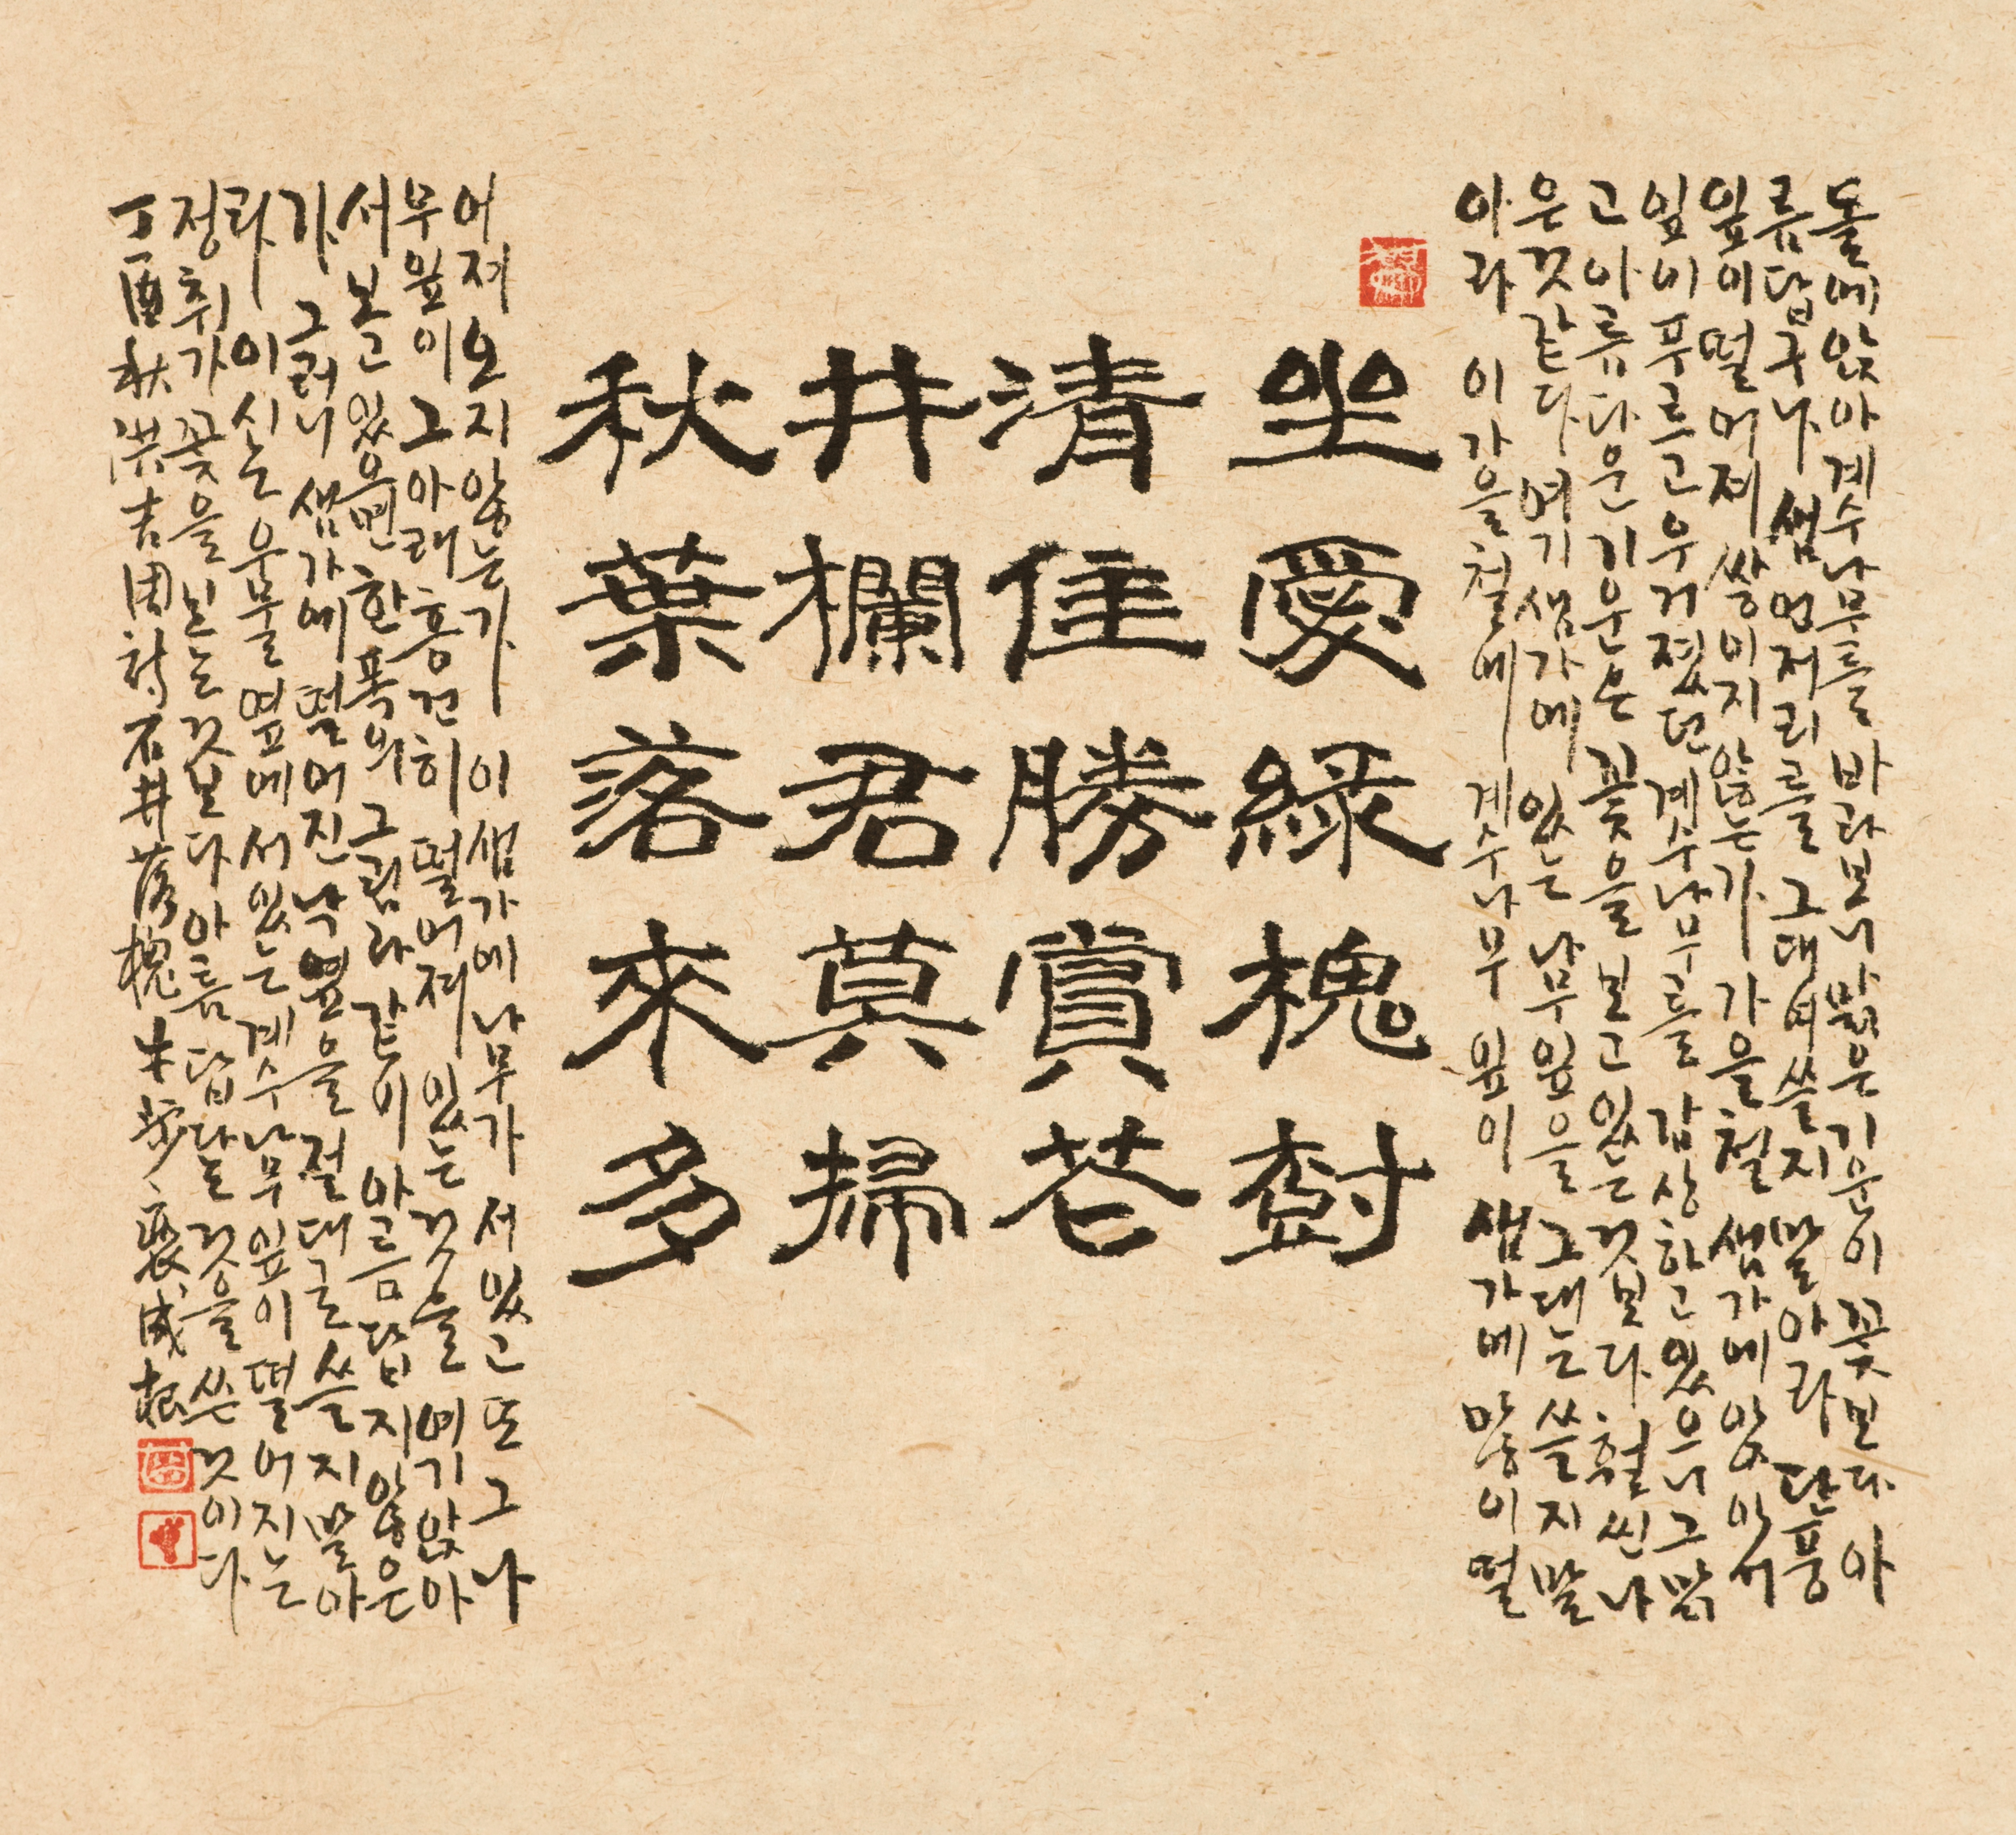 돌에앉아계수나무를 바라보니 맑은기운이 꽃보다 아
름답구나 샘언저리를 그대여쓸지 말아라 단풍
잎이떨어져 쌓이지 않는가 가을철 샘가에 앉아서
잎이푸르고우거졌던 계수나무를 감상하고 있으니 그맑
고아름다운기운은 꽃을 보고 있는 것보다 훨씬나
은것같다 여기샘가에 있는 나무잎을 그대는 쓸지말
아라 이가을철에 계수나무 잎이 샘가에 많이떨
坐愛綠槐樹
清佳勝賞花
井欄君莫掃
秋葉落來多
어져오지않는가 이샘가에나무가 서있고 또그나
무잎이 그아래흥건히 떨어져 있는 것을 여기앉아
서보고있으면 한폭의 그림과같이 아름답지 않은
가 그러니 샘가에 떨어진낙엽을 절대로쓸지말아
라 이시는 우물옆에 서있는계수나무잎이 떨어지는
정취가 꽃을 보는것보다 아름답다는 것을 쓴 것이다
丁酉秋 洪吉周詩 石井落槐 牛步 裵成根